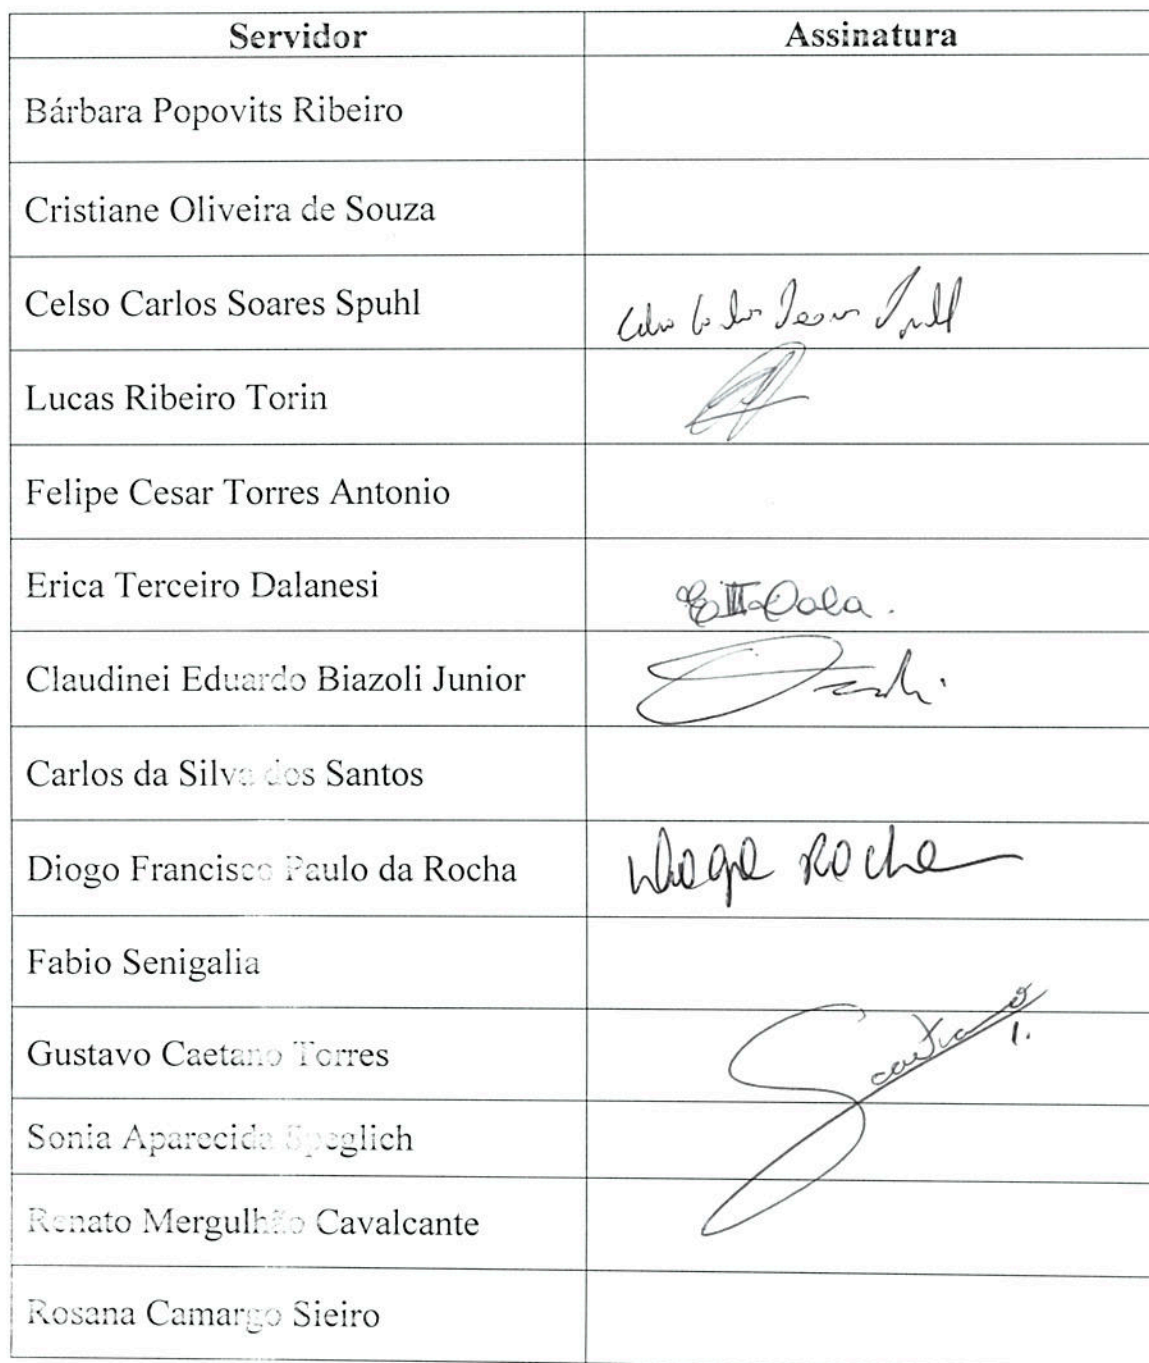 Servidor Assinatura
Bárbara Popovits Ribeiro
Cristiane Oliveira de Souza
Celso Carlos Soares Spuhl
Lucas Ribeiro Torin
Felipe Cesar Torres Antonio
Erica Terceiro Dalanesi
Claudinei Eduardo Biazoli Junior
Carlos da Silva dos Santos
Diogo Francisco Paulo da Rocha Diogo Rocha
Fabio Senigalia
Gustavo Caetano Torres
Sonia Aparecida Speglich
Renato Mergulhão Cavalcante
Rosana Camargo Sieiro